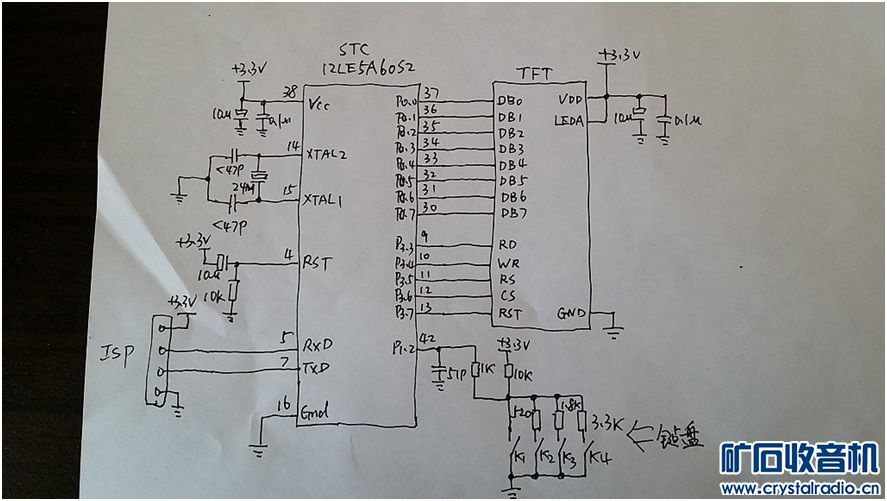 STC
12LE5A60S2
TFT
+3.3V
38
Vcc
10u
0.1u
14
XTAL2
<47P
24M
15
XTAL1
<47P
+3.3V
4
RST
10u
10K
+3.3V
ISP
5
RXD
7
TXD
16
Gnd
P0.0 37 DB0
P0.1 36 DB1
P0.2 35 DB2
P0.3 34 DB3
P0.4 33 DB4
P0.5 32 DB5
P0.6 31 DB6
P0.7 30 DB7
P3.3 9 RD
P3.4 10 WR
P3.5 11 RS
P3.6 12 CS
P3.7 13 RST
P1.2 42
+3.3V
VDD
LEDA
10u
0.1u
GND
51P
1K
+3.3V
10K
520
1.8K
3.3K
键盘
K1 K2 K3 K4
矿石收音机
www.crystalradio.cn